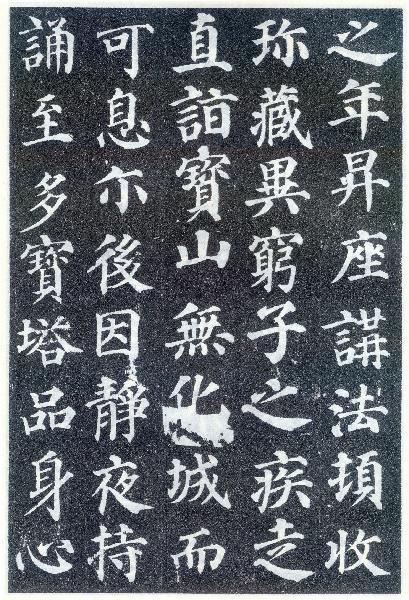 之年昇座講法頓收
珎藏異窮子之疾走
直詣寶山無化城而
可息亦後因靜夜持
誦至多寶塔品身心